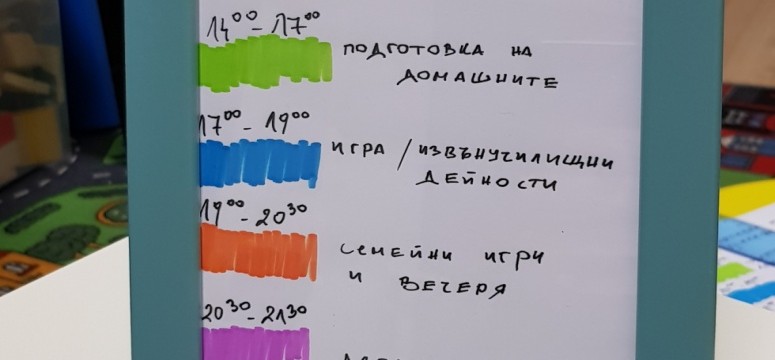 14⁰⁰ - 17⁰⁰
ПОДГОТОВКА НА
ДОМАШНИТЕ
17⁰⁰ - 19⁰⁰
ИГРА / ИЗВЪНУЧИЛИЩНИ
ДЕЙНОСТИ
19⁰⁰ - 20³⁰
СЕМЕЙНИ ИГРИ
И ВЕЧЕРЯ
20³⁰ - 21³⁰